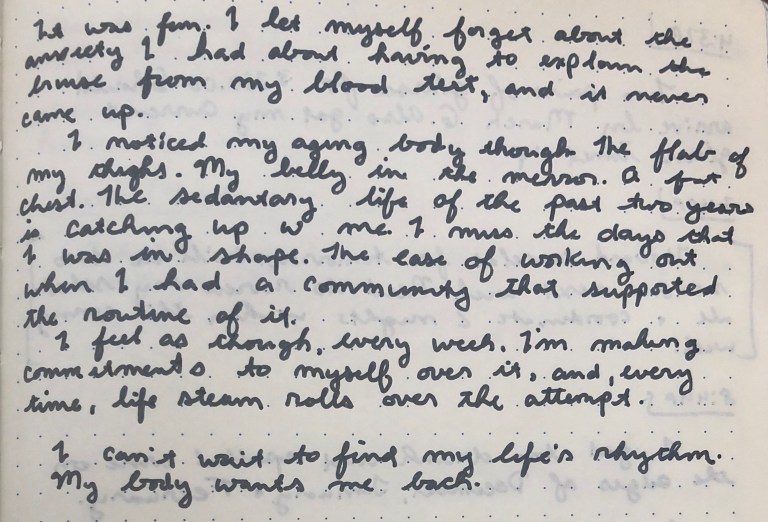 It was fun. I let myself forget about the
anxiety I had about having to explain the
bruise from my blood test, and it never
came up.
I noticed my aging body though. The flab of
my thighs. My belly in the mirror. A fat
chest. The sedantary life of the past two years
is catching up w me. I miss the days that
I was in shape. The ease of working out
when I had a community that supported
the routine of it.
I feel as though, every week, I'm making
commitments to myself over it, and, every
time, life steam rolls over the attempt.
I can't wait to find my life's rhythm.
My body wants me back.